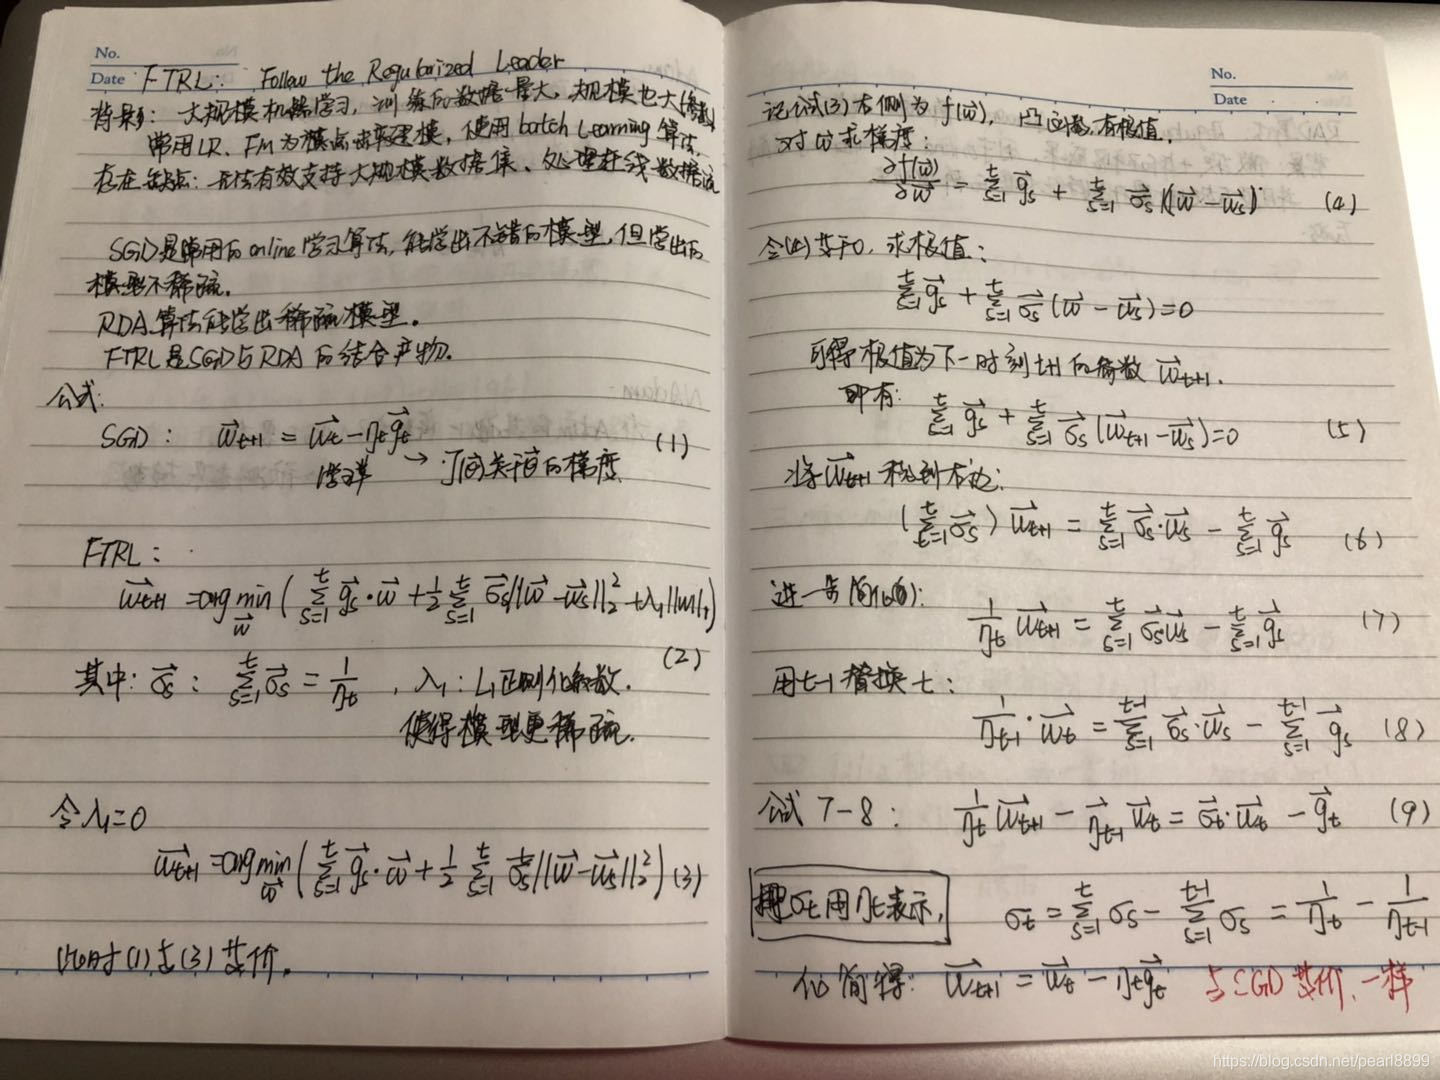 No.
Date
FTRL: Follow the Regularized Leader
背景: 大规模机器学习, 训练的数据量大, 规模也大(参数)
常用LR、FM为模点击率建模, 使用batch Learning算法,
存在缺点: 无法有效支持大规模数据集、处理在线数据流
SGD是常用的online学习算法, 能学出不错的模型, 但学出的
模型不稀疏.
RDA算法能学出稀疏模型.
FTRL是SGD与RDA的结合产物.
公式:
SGD: \vec{w}_{t+1} = \vec{w}_t - η_t\vec{g}_t (1)
学习率 → J(\vec{w})关于\vec{w}的梯度
FTRL:
\vec{w}_{t+1} = arg min_{\vec{w}} ( \sum_{s=1}^{t} \vec{g}_s · \vec{w} + \frac{1}{2} \sum_{s=1}^{t} \vec{σ}_s ||\vec{w} - \vec{w}_s||_2^2 + λ_1||w||_1 )
(2)
其中: \vec{σ}_s: \sum_{s=1}^{t} \vec{σ}_s = \frac{1}{η_t}, λ_1: L_1正则化系数.
使得模型更稀疏.
令λ_1=0
\vec{w}_{t+1} = arg min_{\vec{w}} ( \sum_{s=1}^{t} \vec{g}_s · \vec{w} + \frac{1}{2} \sum_{s=1}^{t} σ_s ||\vec{w} - \vec{w}_s||_2^2 ) (3)
此时(1)与(3)等价.
No.
Date
记公式(3)右侧为f(\vec{w}), 凸函数, 有极值,
对\vec{w}求梯度:
\frac{∂f(\vec{w})}{∂\vec{w}} = \sum_{s=1}^{t} \vec{g}_s + \sum_{s=1}^{t} \vec{σ}_s (\vec{w} - \vec{w}_s) (4)
令(4)等于0, 求极值:
\sum_{s=1}^{t} \vec{g}_s + \sum_{s=1}^{t} \vec{σ}_s (\vec{w} - \vec{w}_s) = 0
可得极值为下一时刻t+1的参数\vec{w}_{t+1}.
即有: \sum_{s=1}^{t} \vec{g}_s + \sum_{s=1}^{t} \vec{σ}_s (\vec{w}_{t+1} - \vec{w}_s) = 0 (5)
将\vec{w}_{t+1}移到左边:
( \sum_{t=1}^{t} \vec{σ}_s ) \vec{w}_{t+1} = \sum_{s=1}^{t} \vec{σ}_s · \vec{w}_s - \sum_{s=1}^{t} \vec{g}_s (6)
进一步简化(6):
\frac{1}{η_t} \vec{w}_{t+1} = \sum_{s=1}^{t} \vec{σ}_s \vec{w}_s - \sum_{s=1}^{t} \vec{g}_s (7)
用t-1替换t:
\frac{1}{η_{t-1}} · \vec{w}_t = \sum_{s=1}^{t-1} \vec{σ}_s · \vec{w}_s - \sum_{s=1}^{t-1} \vec{g}_s (8)
公式7-8: \frac{1}{η_t} \vec{w}_{t+1} - \frac{1}{η_{t-1}} \vec{w}_t = \vec{σ}_t · \vec{w}_t - \vec{g}_t (9)
把σ_t用η_t表示, σ_t = \sum_{s=1}^{t} σ_s - \sum_{s=1}^{t-1} σ_s = \frac{1}{η_t} - \frac{1}{η_{t-1}}
化简得: \vec{w}_{t+1} = \vec{w}_t - η_t\vec{g}_t 与SGD等价、一样
https://blog.csdn.net/pearl8899